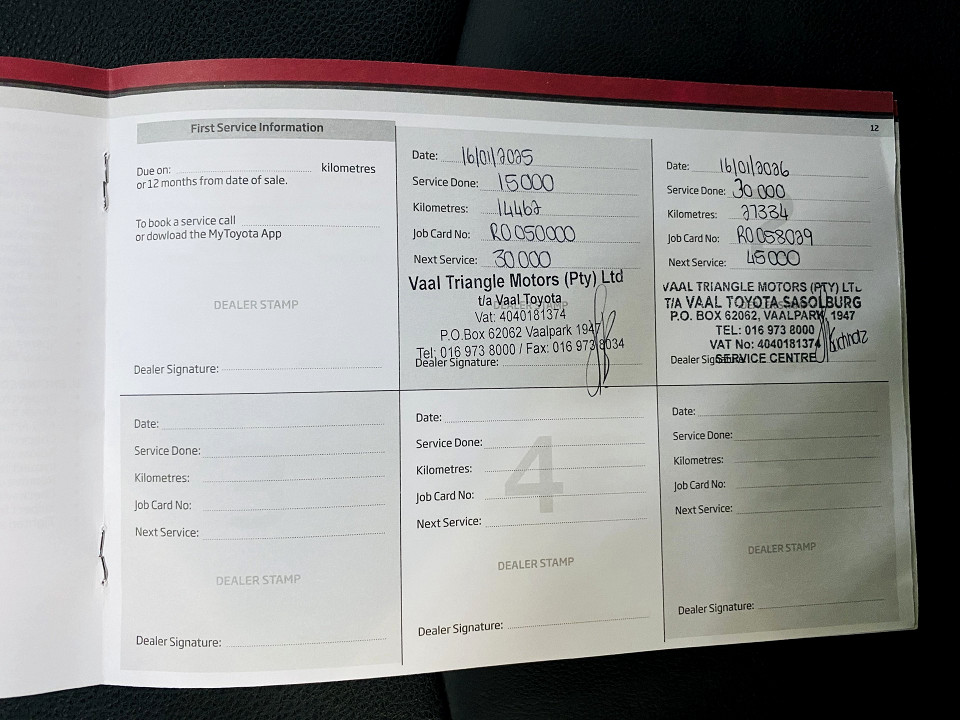 12
First Service Information
Due on: kilometres
or 12 months from date of sale.
To book a service call
or dowload the MyToyota App
DEALER STAMP
Dealer Signature:
Date: 16/01/2025
Service Done: 15000
Kilometres: 14462
Job Card No: RO050000
Next Service: 30000
Vaal Triangle Motors (Pty) Ltd
t/a Vaal Toyota
Vat: 4040181374
P.O.Box 62062 Vaalpark 1947
Tel: 016 973 8000 / Fax: 016 973 8034
Dealer Signature:
Date: 16/01/2026
Service Done: 30 000
Kilometres: 27334
Job Card No: RO058029
Next Service: 45000
VAAL TRIANGLE MOTORS (PTY) LTD
T/A VAAL TOYOTA SASOLBURG
P.O. BOX 62062, VAALPARK, 1947
TEL: 016 973 8000
VAT No: 4040181374
SERVICE CENTRE
Dealer Signature:
Date:
Service Done:
Kilometres:
Job Card No:
Next Service:
DEALER STAMP
Dealer Signature:
Date:
Service Done:
4
Kilometres:
Job Card No:
Next Service:
DEALER STAMP
Dealer Signature:
Date:
Service Done:
Kilometres:
Job Card No:
Next Service:
DEALER STAMP
Dealer Signature: